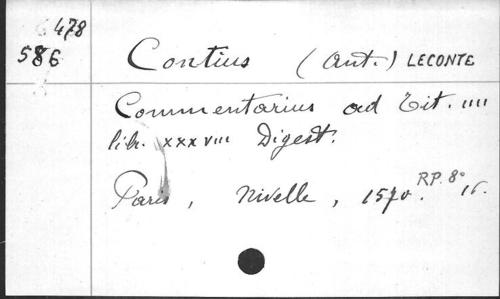 478
586
Contius (Ant.) LECONTE
Commentarius ad Tit. IIII
lib. xxxvIII Digest.
Paris, Nivelle, 1570. RP. 8° 16.